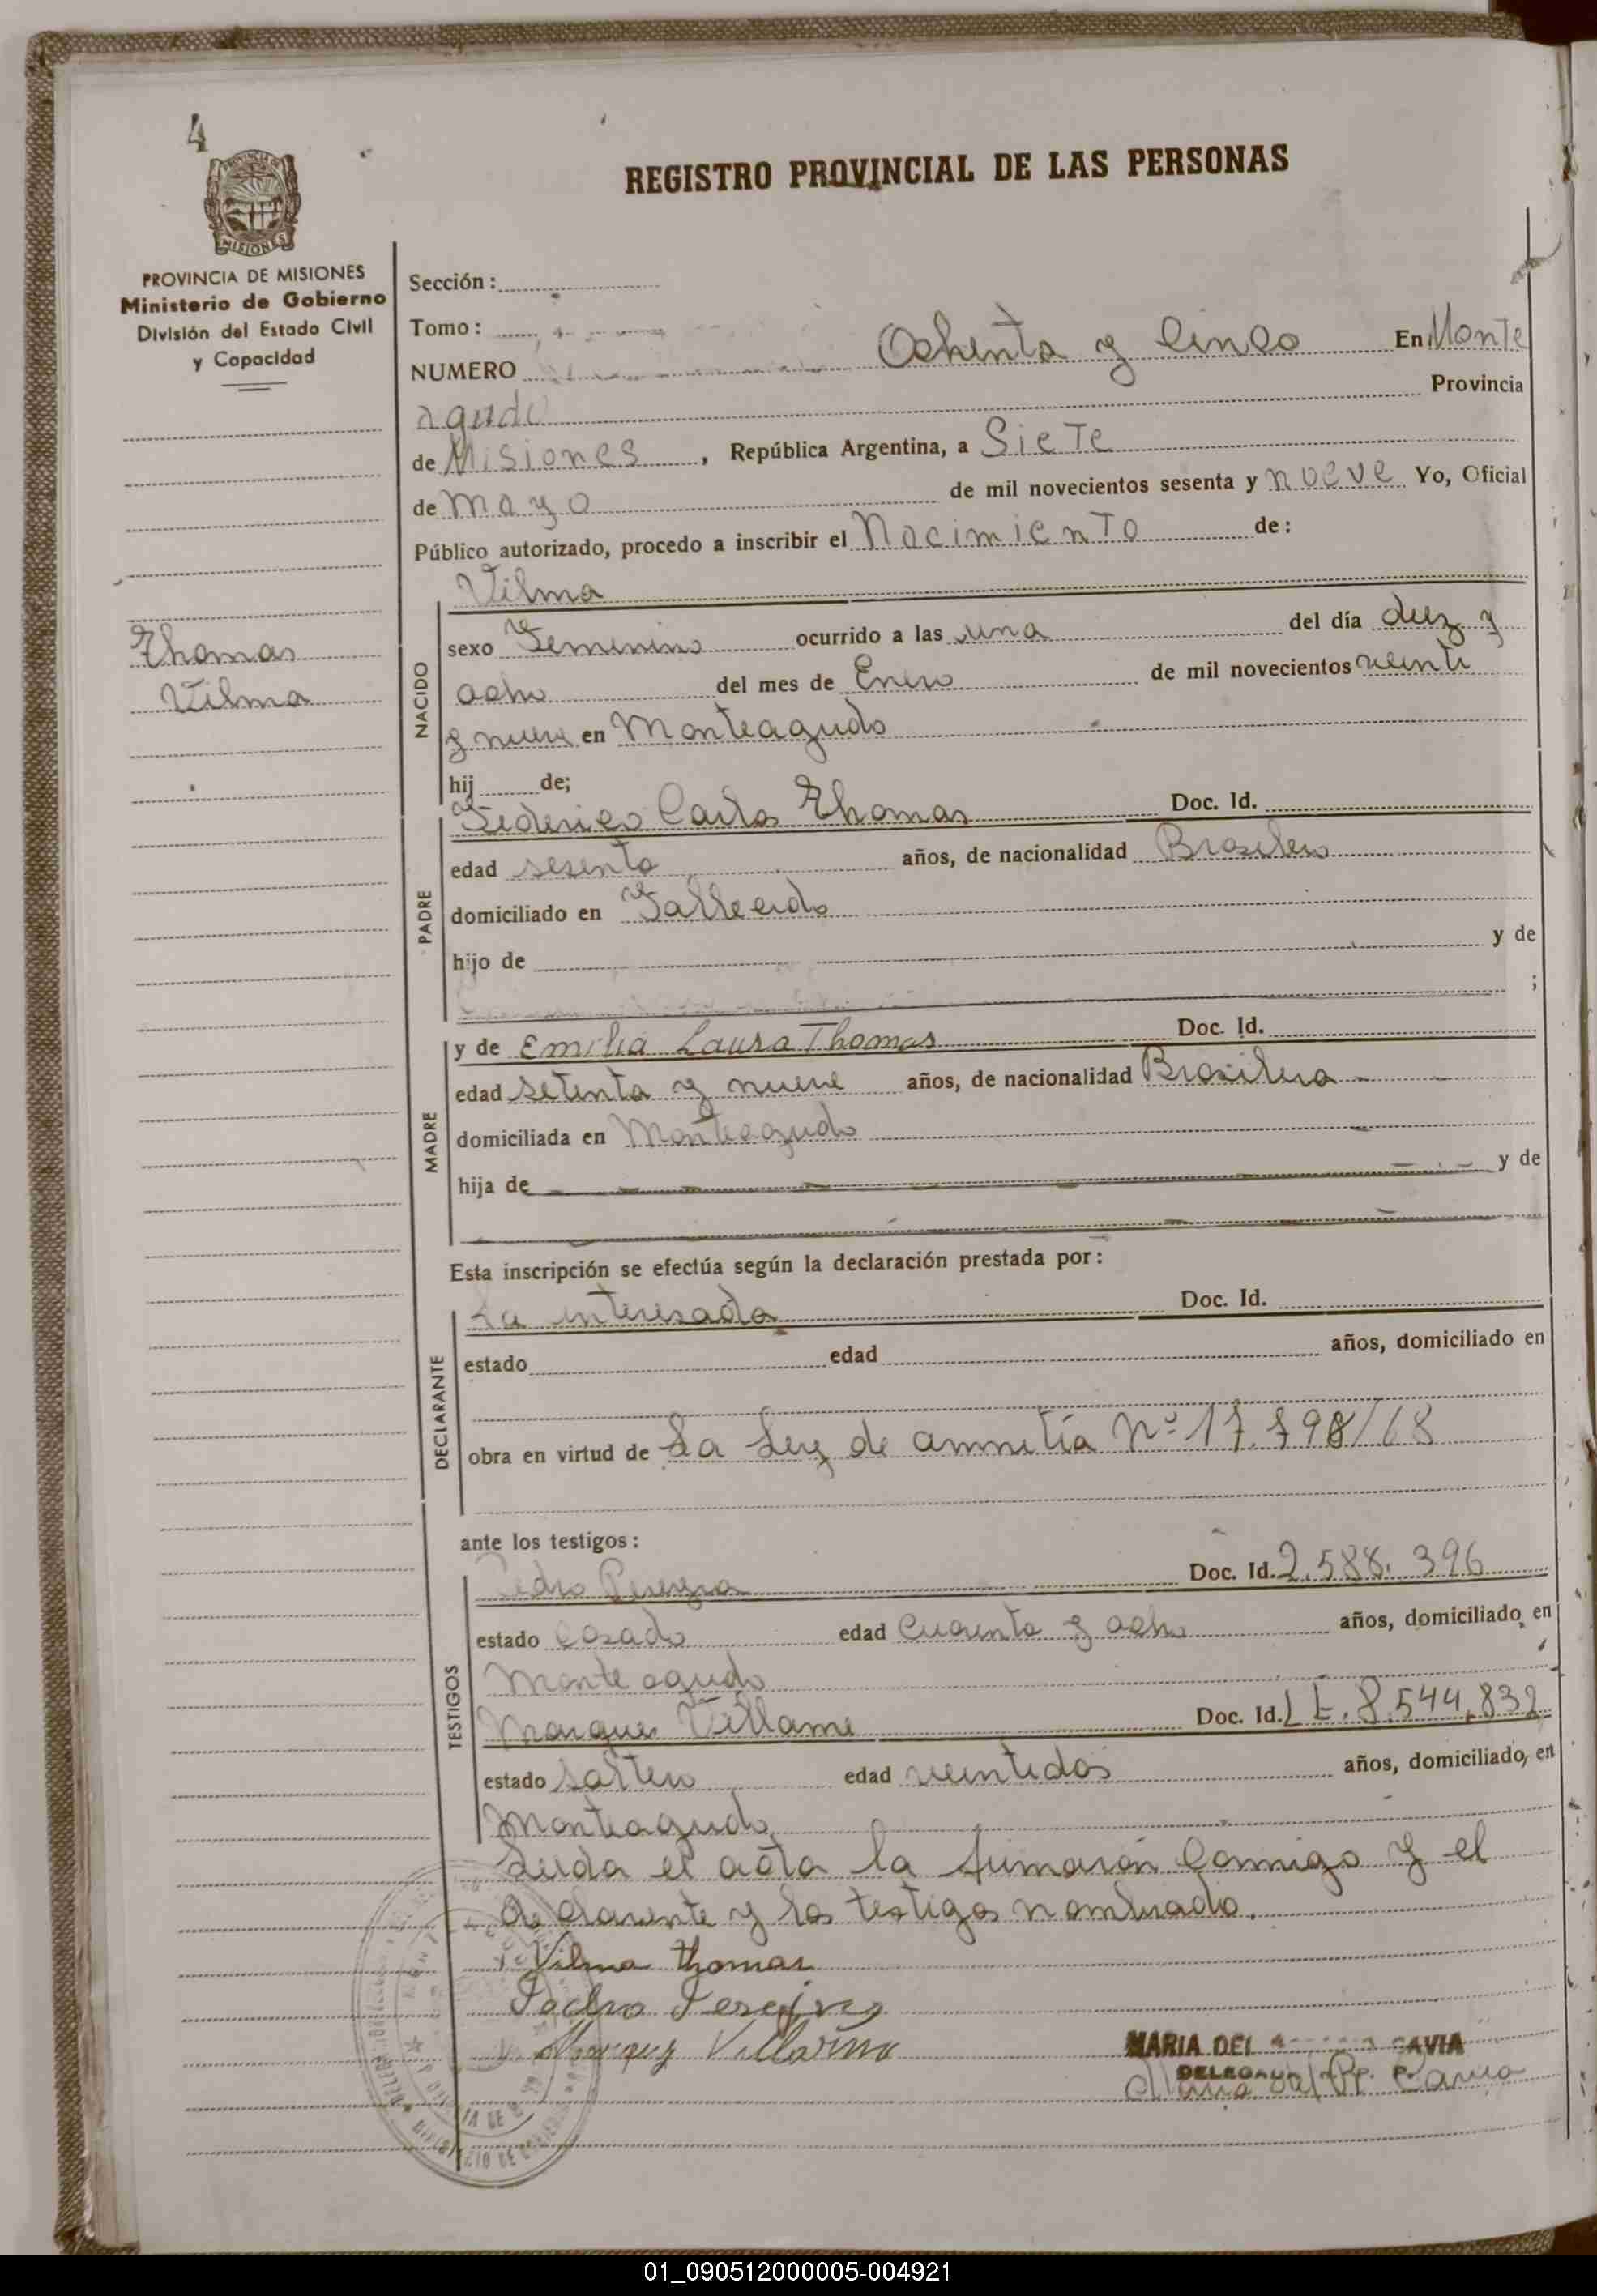 4
MISIONES
REGISTRO PROVINCIAL DE LAS PERSONAS
PROVINCIA DE MISIONES
Ministerio de Gobierno
División del Estado Civil
y Capacidad
Thomas
Vilma
Sección:
Tomo:
NUMERO Ochenta y Cinco En Monte
agudo Provincia
de Misiones, República Argentina, a Siete
de mayo de mil novecientos sesenta y nueve Yo, Oficial
Público autorizado, procedo a inscribir el Nacimiento de:
NACIDO
Vilma
sexo Femenino ocurrido a las una del día diez y
ocho del mes de Enero de mil novecientos veinti
y nueve en Monteagudo
hij de;
PADRE
Federico Carlos Thomas Doc. Id.
edad sesenta años, de nacionalidad Brasilero
domiciliado en Fallecido
hijo de y de
;
MADRE
y de Emilia Laura Thomas Doc. Id.
edad setenta y nueve años, de nacionalidad Brasilera
domiciliada en Monteagudo
hija de y de
Esta inscripción se efectúa según la declaración prestada por:
DECLARANTE
La interesada Doc. Id.
estado edad años, domiciliado en
obra en virtud de La Ley de amnitía Nº 17.798/68
ante los testigos:
TESTIGOS
Pedro Pereyra Doc. Id. 2.588.396
estado Casado edad cuarenta y ocho años, domiciliado en
Monteagudo
Doc. Id. L E. 8.544.832
estado soltero edad veintidos años, domiciliado, en
Monteagudo
Leida el acta la firmarón Conmigo y el
declarante y los testigos nombrado.
Vilma Thomas
Pedro
MARIA DEL CAVIA
DELEGADA R. P. P.
Maria del P. Cavia
01_090512000005-004921